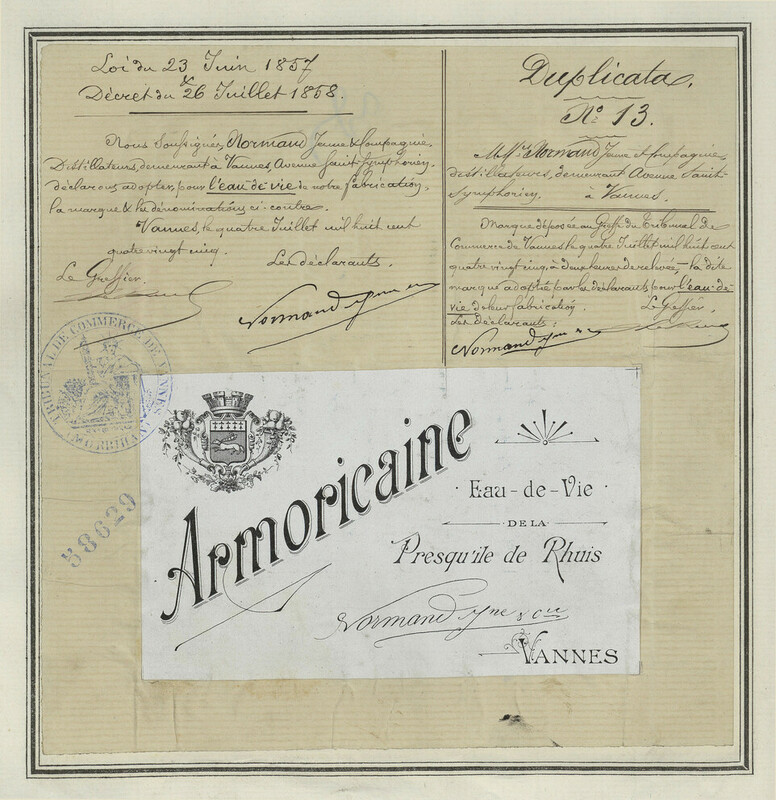 Loi du 23 Juin 1857
Décret du 26 Juillet 1858.
Nous soussignés, Normand Jeune & Compagnie,
Distillateurs, demeurant à Vannes, Avenue Saint-Symphorien,
déclarons adopter, pour l'eau-de-vie de notre fabrication,
la marque & les dénominations ci-contre.
Vannes, le quatre Juillet mil huit cent
quatre vingt cinq.
Les déclarants.
Le Greffier.
Normand Jne
Duplicata.
No 13.
MM. Normand Jeune et Compagnie,
distillateurs, demeurant Avenue Saint-
Symphorien, à Vannes.
Marque déposée au Greffe du Tribunal de
Commerce de Vannes, le quatre Juillet mil huit cent
quatre vingt cinq, à deux heures de relevée, la dite
marque adoptée par les déclarants pour l'eau-de-
vie de leur fabrication.
Le Greffier,
Les Déclarants:
Normand Jne
TRIBUNAL DE COMMERCE DE VANNES (MORBIHAN)
58629
Armoricaine
Eau-de-Vie
DE LA
Presqu'ile de Rhuis
Normand Jne & Cie
VANNES